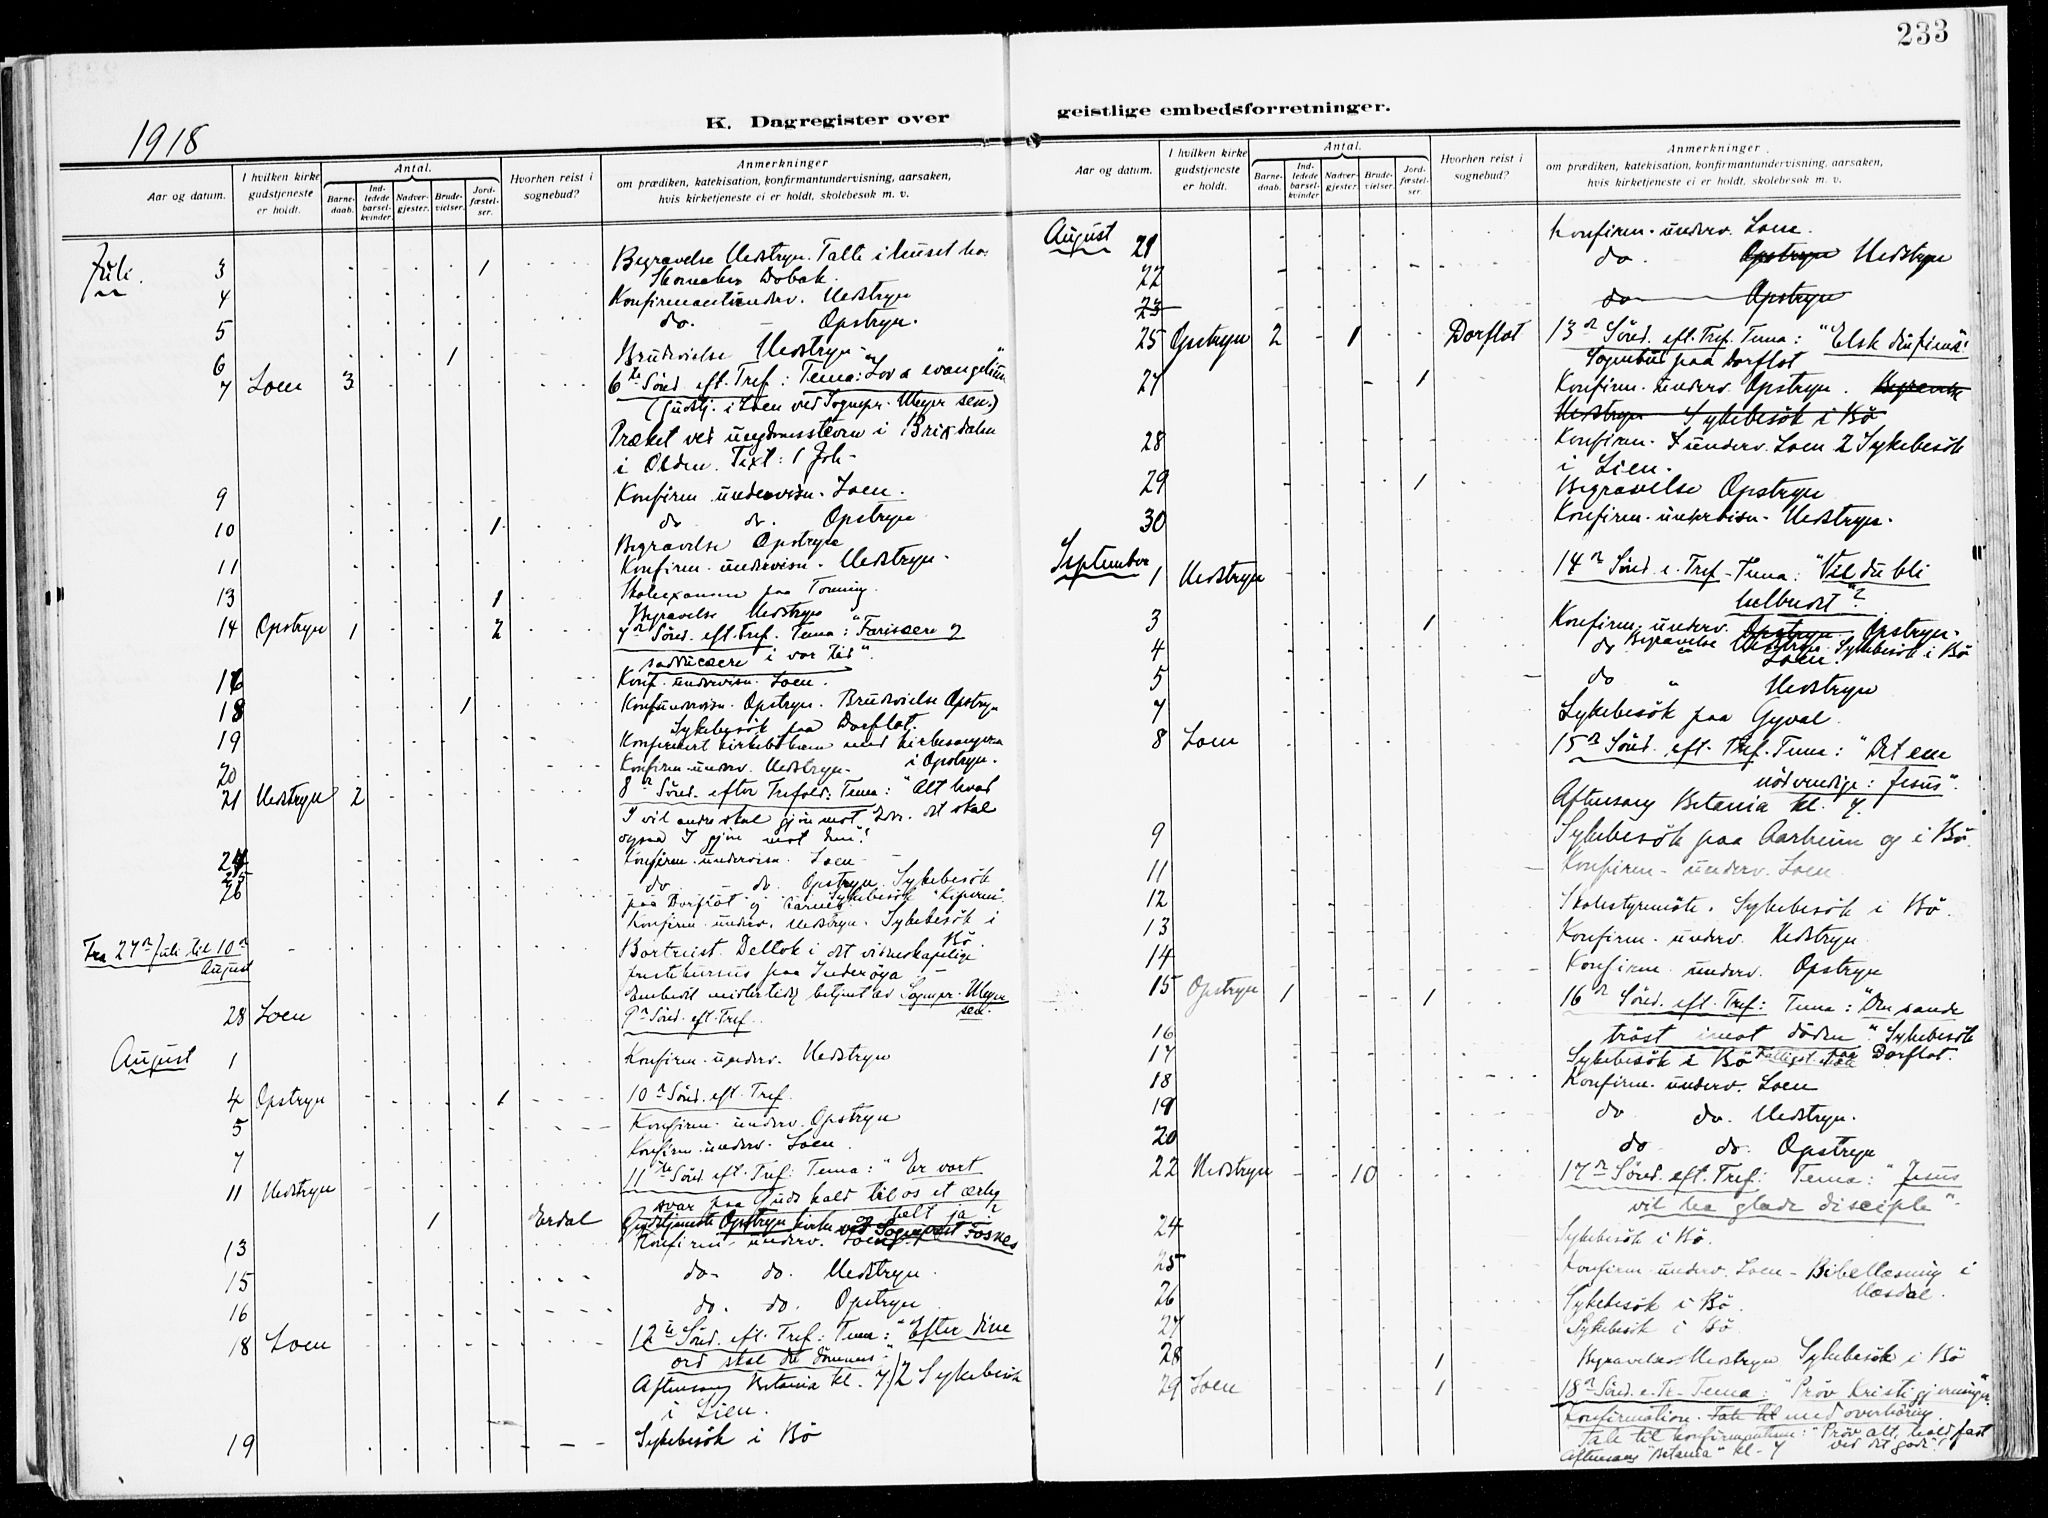 233
K. Dagregister over
geistlige embedsforretninger.
1918
Aar og datum.
I hvilken kirke gudstjeneste er holdt.
Antal.
Barne-daab.
Ind-ledede barsel-kvinder.
Nadver-gjester.
Brude-vielser.
Jord-fæstel-ser.
Hvorhen reist i sognebud?
Anmerkninger
om prædiken, katekisation, konfirmantundervisning, aarsaken,
hvis kirketjeneste ei er holdt, skolebesøk m. v.
Juli. 3 1 Begravelse Nedstryn. Talte i huset hos
Skomaker Dobak.
4 Konfirmantunderv. Nedstryn
5 do. Opstryn.
6 1 Brudevielse Nedstryn
7 Loen 3 6te Sönd. eft. Tref: Tema: Lov og evangelium
(Gudstj. i Loen ved Sognepr. Meyer sen.)
Præket ved ungdomsstevne i Brixdalen
i Olden. Text: 1 Joh-
9 Konfirm. undervisn. Loen.
10 1 do do. Opstryn
Begravelse Opstryn
11 Konfirm. undervisn. Nedstryn.
13 1 Skoleexamen paa Tonning.
Begravelse Nedstryn
14 Opstryn 1 2 7n Sönd. eft. Tref. Tema: "Farisæere og
sadducæere i vor tid".
16 Konf. undervisn. Loen.
18 1 Konfundervisn. Opstryn. Brudevielse Opstryn
Sykebesök paa Dorflot.
19 Konfirmert kirkebökene med kirkesangeren
i Opstryn.
20 Konfirm. underv. Nedstryn.
21 Nedstryn 2 8n Sönd. efter Trefold: Tema: "Alt hvad
I vil andre skal gjöre mot Eder. det skal
ogsaa I gjöre mot dem"!
24 Konfirm. undervisn. Loen
25 do do. Opstryn. Sykebesök
paa Dorflot og
26 Konfirm. underv. Nedstryn. Sykebesök i
Bö.
Fra 27n Juli til 10n August Bortreist. Deltok i det videnskapelige
prestekursus paa Inderöya
Embedet midlertidig betjent av Sognepr. Meyer
sen.
28 Loen 9n Sönd. eft. Tref.
August 1 Konfirm. underv. Nedstryn
4 Opstryn 1 10n Sönd. eft. Tref.
5 Konfirm. underv. Opstryn
7 Konfirm. underv. Loen.
11 Nedstryn 11te Sönd. eft. Tref: Tema: "Er vort
svar paa Guds kald til os et ærlig
og helt ja"?
1 Erdal Gudstjeneste Opstryn kirke ved Sogneprest Fosnes
13 Konfirm. underv. Loen
15 do. do. Nedstryn.
16 do. do. Opstryn
18 Loen 12n Sönd. eft. Tref: Tema: "Efter dine
ord skal du dömmes."
Aftensang Betania kl. 7. 2 Sykebesök
i Lien.
19 Sykebesök i Bö
Aar og datum.
I hvilken kirke gudstjeneste er holdt.
Antal.
Barne-daab.
Ind-ledede barsel-kvinder
Nadver-gjester.
Brude-vielser.
Jord-fæstel-ser.
Hvorhen reist i sognebud?
Anmerkninger
om prædiken, katekisation, konfirmantundervisning, aarsaken,
hvis kirketjeneste ei er holdt, skolebesøk m. v.
August 21 Konfirm. underv. Loen.
22 do. Opstryn Nedstryn
23 do Opstryn
25 Opstryn 2 1 Dorflot 13n Sönd. eft. Tref. Tema: "Elsk din fiende!"
Sognebud paa Dorflot
27 1 Konfirm. underv. Opstryn. Begravelse
Nedstryn Sykebesök i Bö
28 Konfirm. underv. Loen 2 Sykebesök
i Lien.
29 1 Begravelse Opstryn
30 Konfirm. undervisn. Nedstryn.
September 1 Nedstryn 14n Sönd. e. Tref. Tema: "Vil du bli
helbredet"?
3 1 Konfirm. underv. Opstryn. Opstryn.
Begravelse Nedstryn. Sykebesök i Bö
4 do " Loen.
5 do " Nedstryn
7 Sykebesök paa Gyval.
8 Loen 15n Sönd. eft. Tref. Tema: "Det ene
nödvendige: Jesus".
Aftensang Betania kl. 7.
9 Sykebesök paa Aarheim og i Bö.
11 Konfirm. underv. Loen.
12 Skolestyremöte. Sykebesök i Bö.
13 Konfirm. underv. Nedstryn
14 Konfirm. underv. Opstryn
15 Opstryn 1 1 16n Sönd. eft. Tref: Tema: "Den sande
tröst imot döden". Sykebesök
paa Dorflot.
16 Sykebesök i Bö
17
18 Konfirm. underv. Loen
19 do do. Nedstryn.
20 do do. Opstryn
22 Nedstryn 10 17n Sönd. eft. Tref: Tema: "Jesus
vil ha glade disciple".
24 Sykebesök i Bö.
25 Konfirm. underv. Loen - Bibellæsning i
26 Sykebesök i Bö.
27 Sykebesök i Bö.
28 1 Begravelse Nedstryn Sykebesök i Bö
29 Loen 1 18n Sönd. e. Tr. Tema: "Pröv Kristi gjerninger".
Konfirmation. Tale til med overhöring.
Tale til konfirmantene: "Pröv alt, hold fast
ved det gode"!
Aftensang "Betania" kl. 7